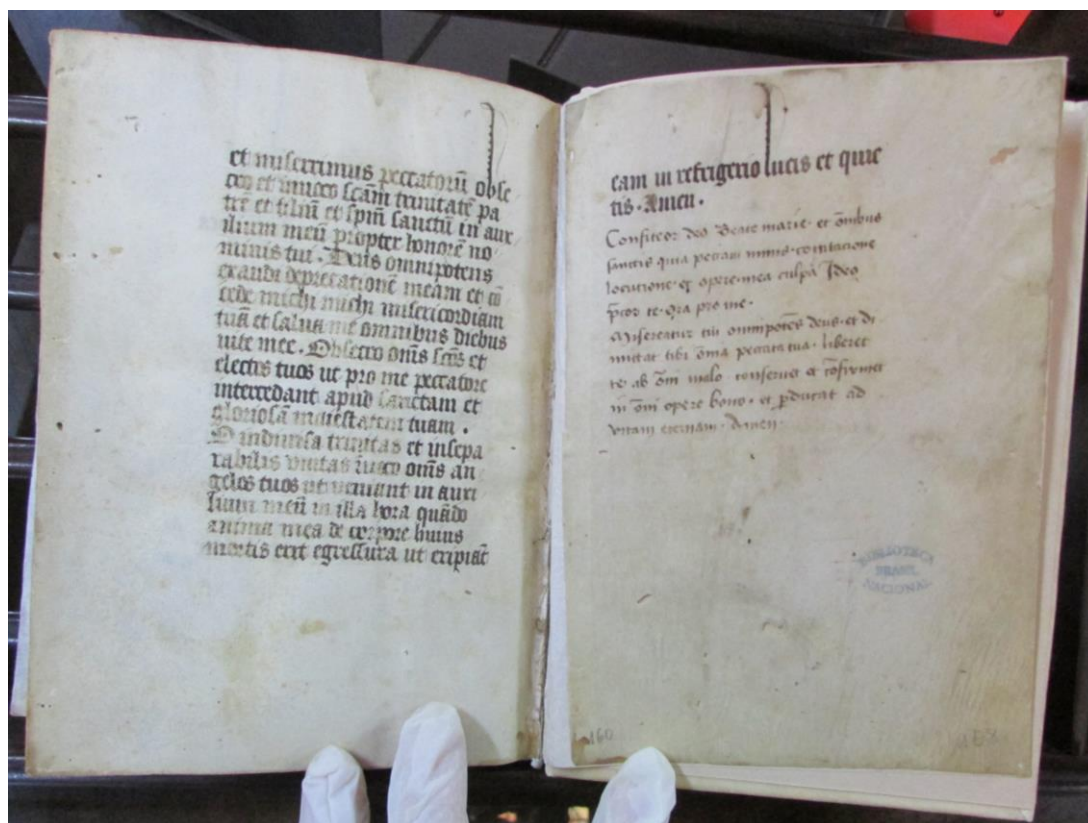 et miserrimus peccatorū obse
cro et inuoco scām trinitatē pa
trē et filiū et spm̄ sanctū in aux
ilium meū propter honorē no
minis tui. Deus omnipotens
exaudi deprecationē meam et cō
cede michi michi misericordiam
tuā et salua me omnibus diebus
uite mee. Obsecro om̄s scōs et
electos tuos ut pro me peccatore
intercedant apud sanctam et
gloriosā maiestatem tuam.
O indiuisa trinitas et insepa
rabilis vnitas om̄s an
gelos tuos ut ueniant in auxi
lium meū in illa hora quādo
anima mea de corpore huius
mortis erit egressura ut eripiāt
eam in refrigerio lucis et quie
tis. Amen.
Confiteor deo Beate marie et ōnibus
sanctis quia peccaui nimis. cogitacione
locutione. et opere. mea culpa Ideo
p̄cor te. Ora pro me.
Misereatur tui omnipotēs deus. et di
mittat tibi ōnia peccata tua. liberet
te ab ōni malo. conseruet et cōfirmet
in ōni opere bono. et p̱ducat ad
vitam eternam. Amen.
BIBLIOTECA
BRASIL
NACIONAL
160